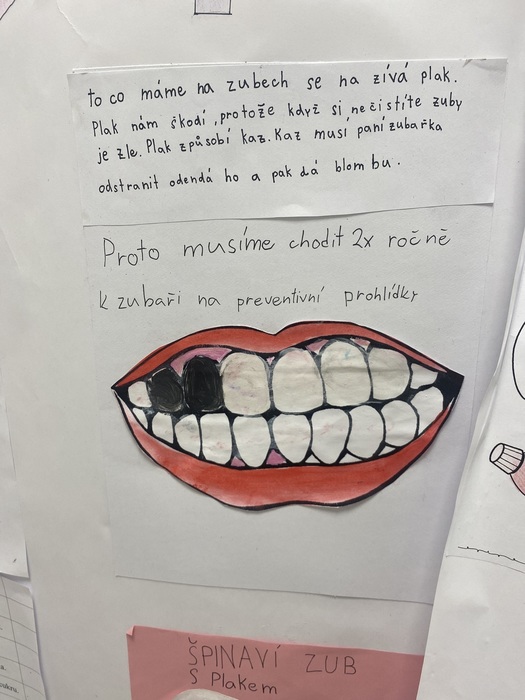 to co máme na zubech se na zívá plak.
Plak nám škodí, protože když si nečistíte zuby
je zle. Plak způsobí kaz. Kaz musí paní zubařka
odstranit odendá ho a pak dá blombu.
Proto musíme chodit 2x ročně
k zubaři na preventivní prohlídky
ŠPINAVÍ ZUB
S Plakem